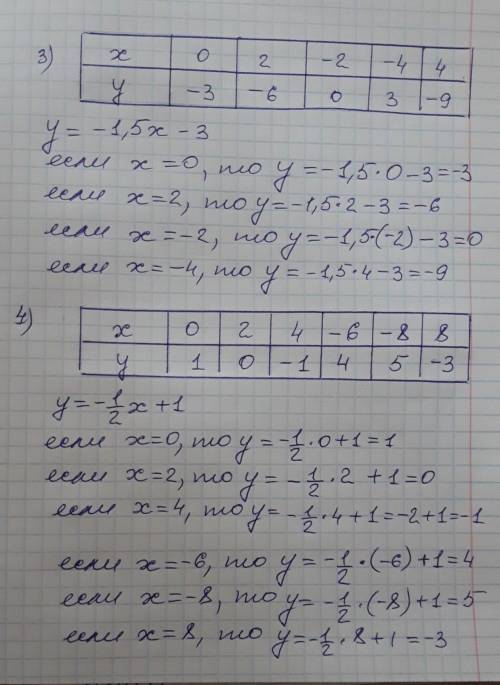 3)
x 0 2 -2 -4 4
y -3 -6 0 3 -9
y = -1,5x - 3
если x = 0, то y = -1,5·0 - 3 = -3
если x = 2, то y = -1,5·2 - 3 = -6
если x = -2, то y = -1,5·(-2) - 3 = 0
если x = -4, то y = -1,5·4 - 3 = -9
4)
x 0 2 4 -6 -8 8
y 1 0 -1 4 5 -3
y = -1/2x + 1
если x = 0, то y = -1/2·0 + 1 = 1
если x = 2, то y = -1/2·2 + 1 = 0
если x = 4, то y = -1/2·4 + 1 = -2 + 1 = -1
если x = -6, то y = -1/2·(-6) + 1 = 4
если x = -8, то y = -1/2·(-8) + 1 = 5
если x = 8, то y = -1/2·8 + 1 = -3